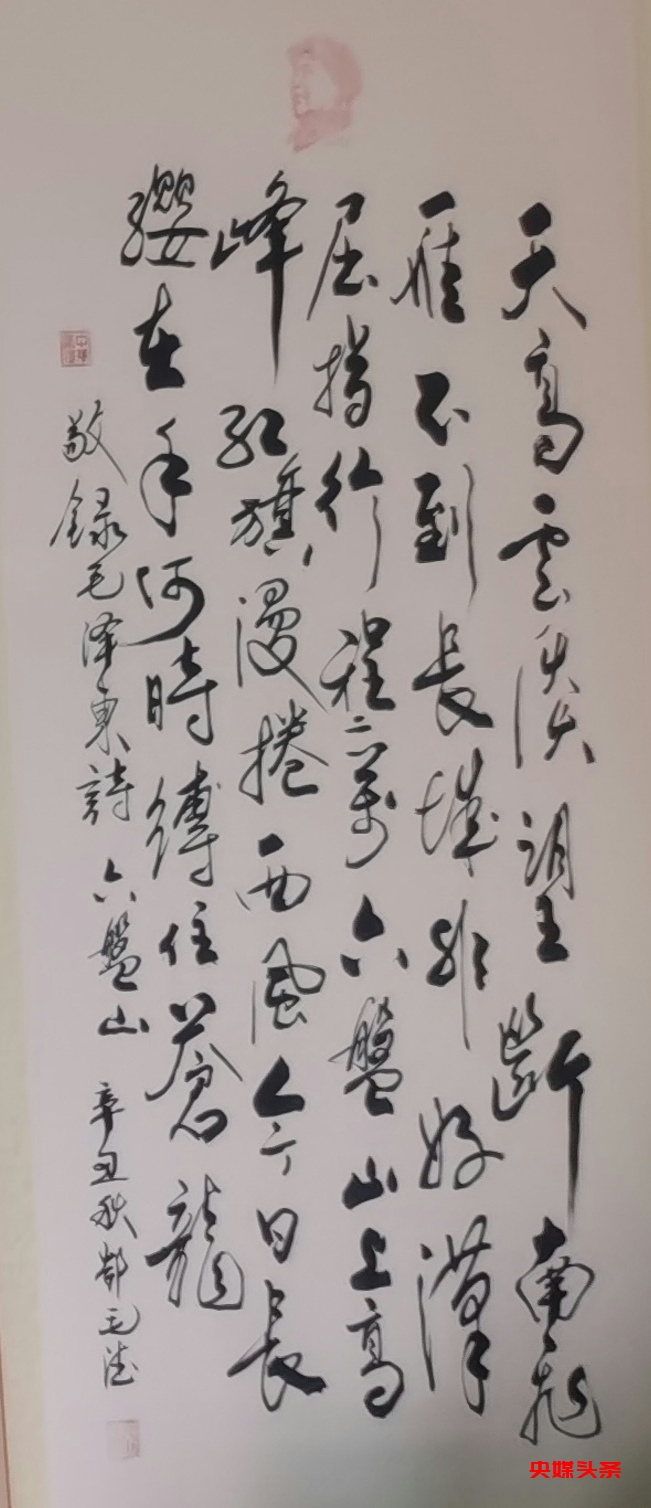 天高雲淡望斷南飛
雁不到長城非好漢
屈指行程二萬六盤山上高
峰紅旗漫捲西風今日長
纓在手何時縛住蒼龍
敬録毛泽東詩六盤山 辛丑秋
央媒头条